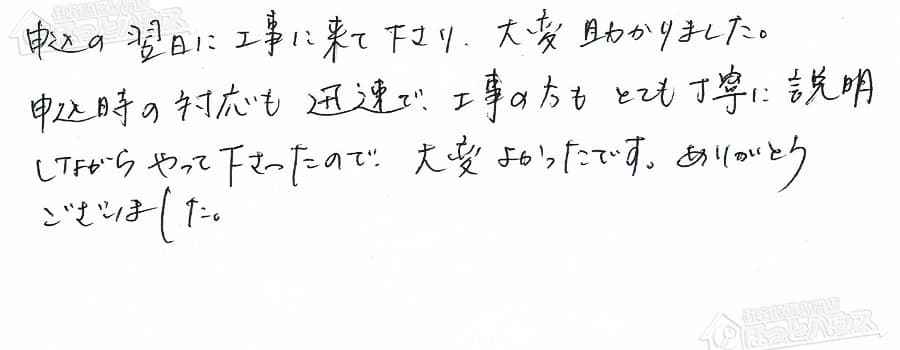 申込の翌日に工事に来て下さり、大変助かりました。
申込時の対応も迅速で、工事の方もとても丁寧に説明
しながらやって下さったので、大変よかったです。ありがとう
ございました。
住宅設備専門店
ほっとハウス